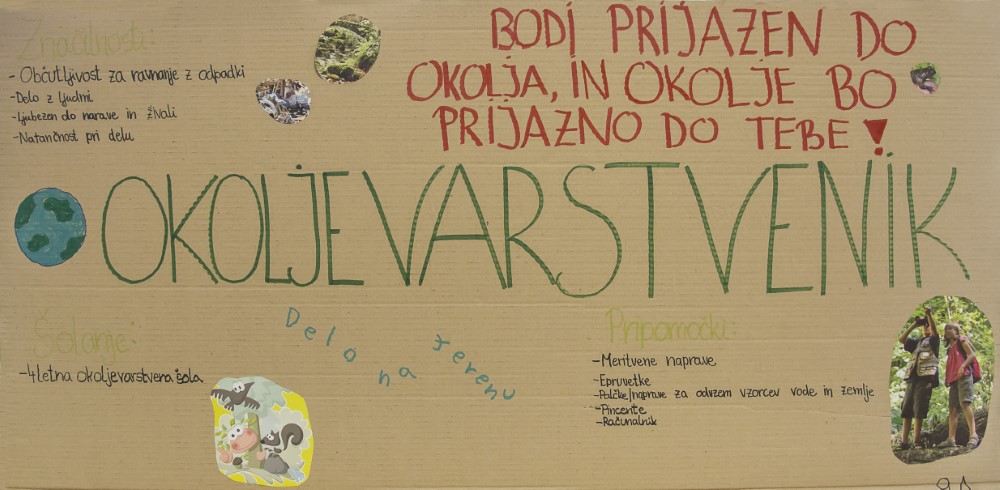 Značilnosti:
- Občutljivost za ravnanje z odpadki
- Delo z ljudmi
- Ljubezen do narave in žvali
- Natančnost pri delu
BODI PRIJAZEN DO
OKOLJA, IN OKOLJE BO
PRIJAZNO DO TEBE!
OKOLJEVARSTVENIK
Šolanje:
- 4 letna okoljevarstvena šola
Delo na terenu
Pripomočki:
- Meritvene naprave
- Epruvetke
- Poličke/naprave za odvzem vzorcev vode in zemlje
- Pincente
- Računalnik